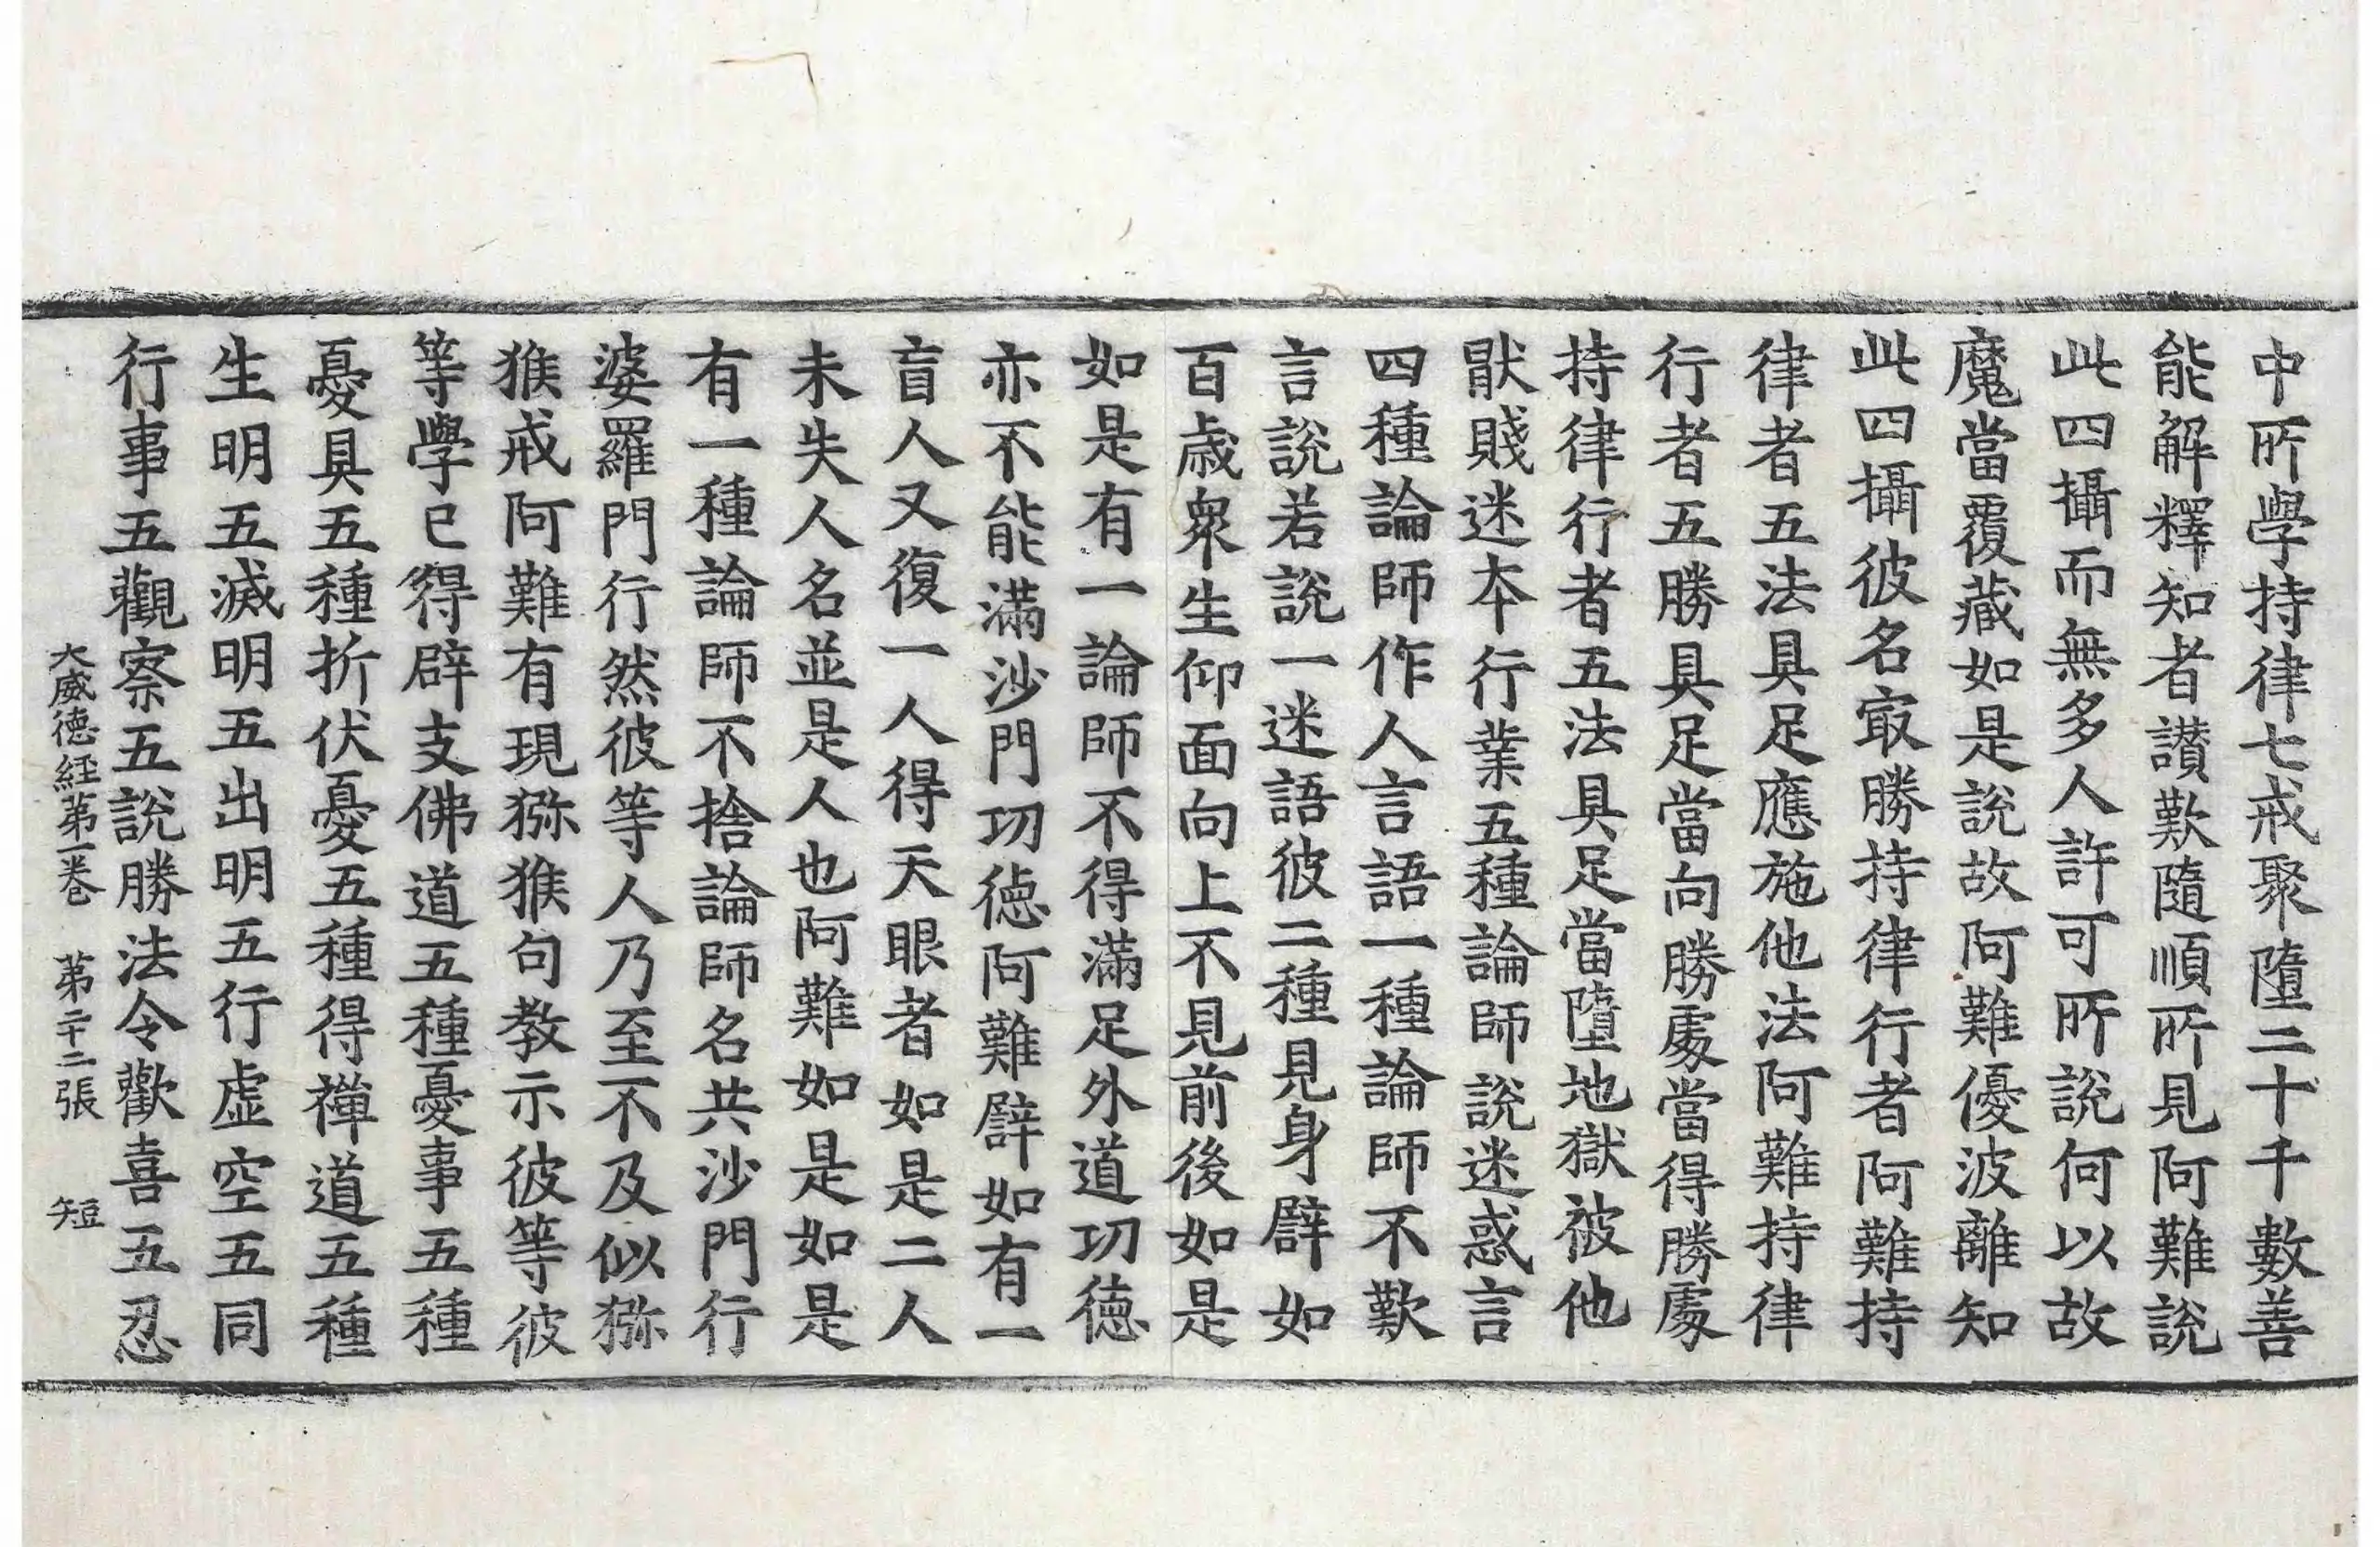 中所學持律七戒聚墮二十千數善
能解釋知者讃歎隨順所見阿難說
此四攝而無多人許可所說何以故
魔當覆藏如是說故阿難優波離知
此四攝彼名㝡勝持律行者阿難持
律者五法具足應施他法阿難持律
行者五勝具足當向勝處當得勝處
持律行者五法具足當墮地獄被他
猒賤迷本行業五種論師說迷惑言
四種論師作人言語一種論師不歎
言說若說一迷語彼二種見身辟如
百歲衆生仰面向上不見前後如是
如是有一論師不得滿足外道功德
亦不能滿沙門功德阿難辟如有一
盲人又復一人得天眼者如是二人
未失人名並是人也阿難如是如是
有一種論師不捨論師名共沙門行
婆羅門行然彼等人乃至不及似猕
猴戒阿難有現猕猴句教示彼等彼
等學已得辟支佛道五種憂事五種
憂具五種折伏憂五種得禪道五種
生明五滅明五出明五行虛空五同
行事五觀察五說勝法令歡喜五忍
大威德経第一卷 第二十二張 短